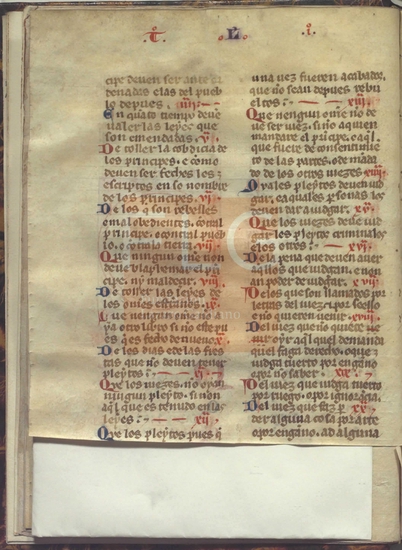 T. L. i.
cipe deuen ser ante or
denadas e las del pueb
lo depues. iiij.
En quanto tiempo deue
ualer las leyes que
son emendadas. v.
De toller la cobdicia de
los principes. e cómo
deuen ser fechos los
escriptos en so nombre
de los principes. vi.
De los que son rebelles
o mal obedientes. contral
principe. o contral pueb
lo. o contra la tierra. vij.
Que ningun omne non
deue blasfemar el prin
cipe. ni maldezir. viij.
De toller las leyes de
los omnes estrannos. ix.
Que nengun omne no a
ya otro libro si no este
que es fecho de nueuo. x.
De los dias e de las fies
tas que no deuen tener
pleytos. xi.
Que los iuezes. no oyan
ningun pleyto. si non
aquel que es tenudo en las
leyes. xij.
Que los pleytos pues que
una uez fueren acabados.
que no sean depues rebu
eltos. xiij.
Que nengun omne no de
ue ser iuez. si no aquien
mandare el principe. o aquel
que fuere de consentimien
to de las partes. o de manda
do de los otros iuezes. xiiij.
Quales pleytos deuen iud
gar. e a quales personas los
deuen dar a iudgar. xv.
Que los iuezes deuen iud
gar los pleytos criminales
e los otros. xvi.
De la pena que deuen auer
aquellos que iudgan. e non
an poder de iudgar. xvij.
De los que son llamados por
letras del iuez. o por seello
e no quieren uenir. xviij.
Del iuez que no quiere
oyr aquel quel demanda
quel faga derecho. o que
iudga tuerto por enganno
o por no saber. xix.
Del iuez que iudga tuerto
por ruego. o por ignorancia. xx.
Del iuez que faz per
der alguna cosa por arte
o por enganno. ad alguna